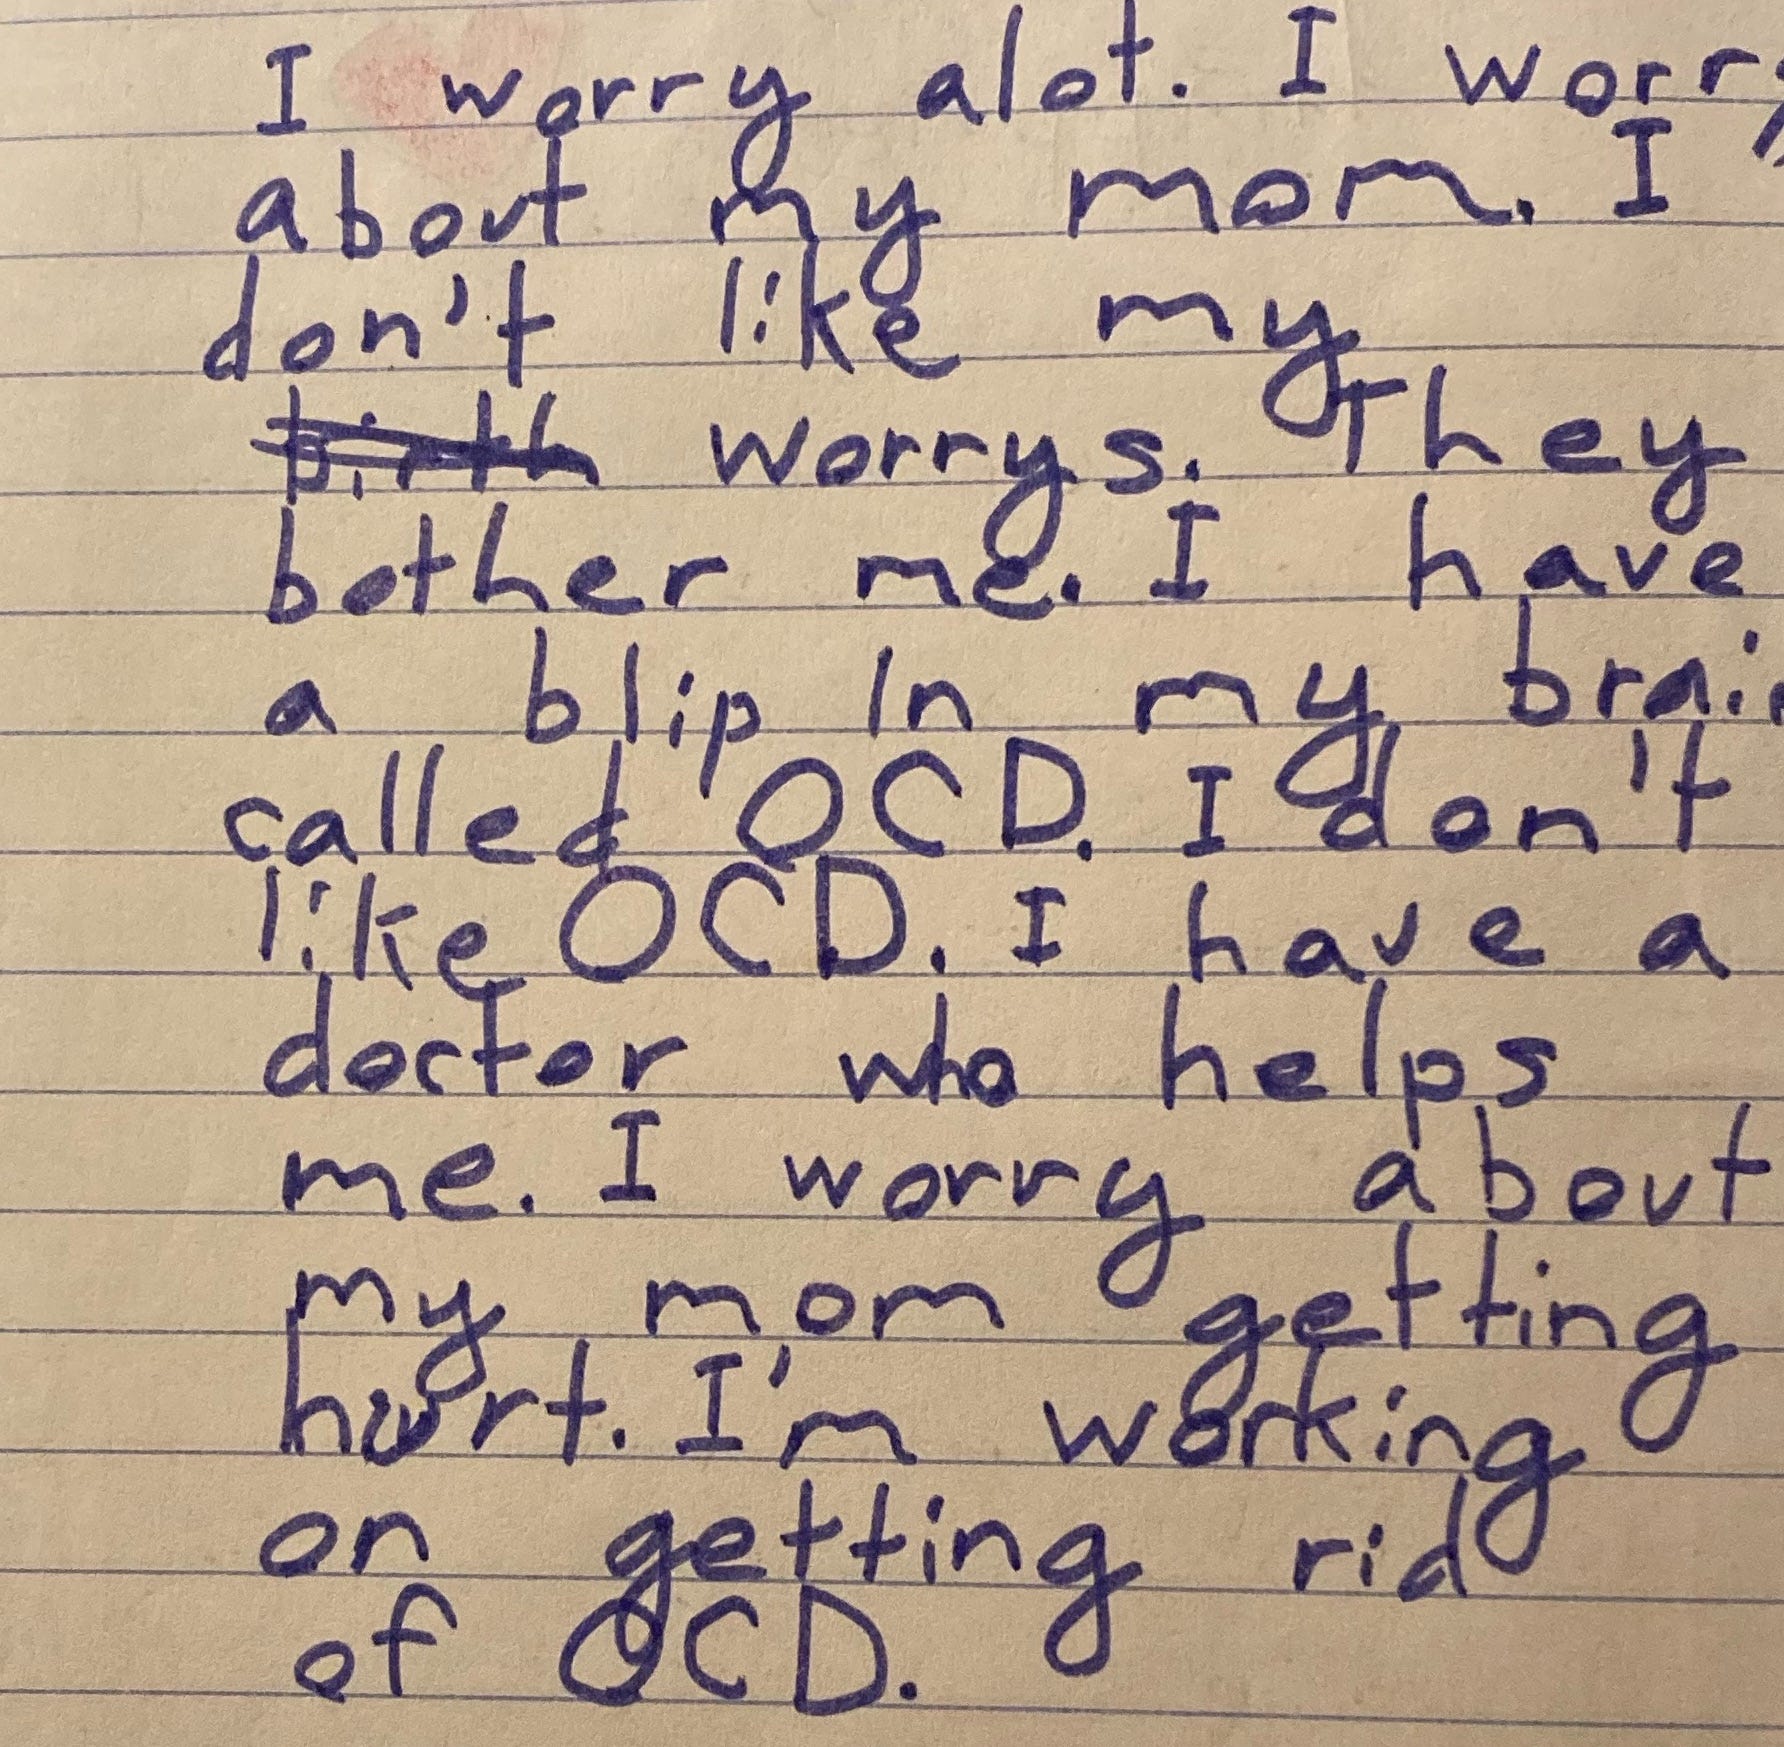 I worry alot. I worry
about my mom. I
don't like my
birth worrys. They
bother me. I have
a blip In my brain
called OCD. I don't
like OCD. I have a
doctor who helps
me. I worry about
my mom getting
hurt. I'm working
on getting rid
of OCD.